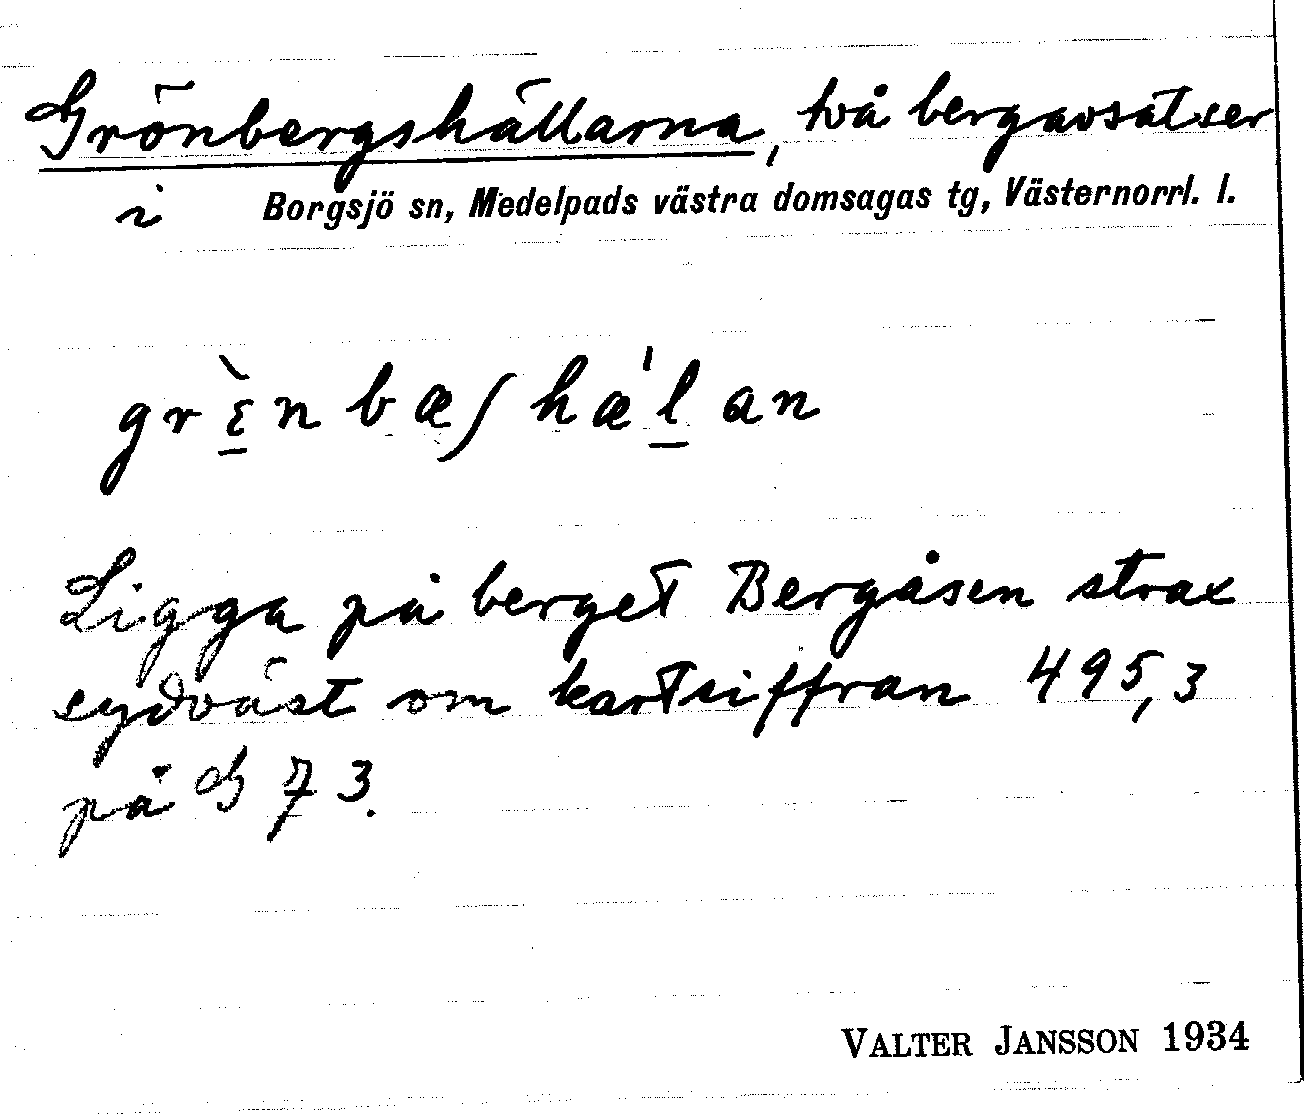 Grönbergshällarna, två bergavsatser
i Borgsjö sn, Medelpads västra domsagas tg, Västernorrl. l.
grɛ̠̀nbæʃhæ'l̠an
Ligga på berget Bergåsen strax
sydväst om kartsiffran 495,3
på G 73.
VALTER JANSSON 1934